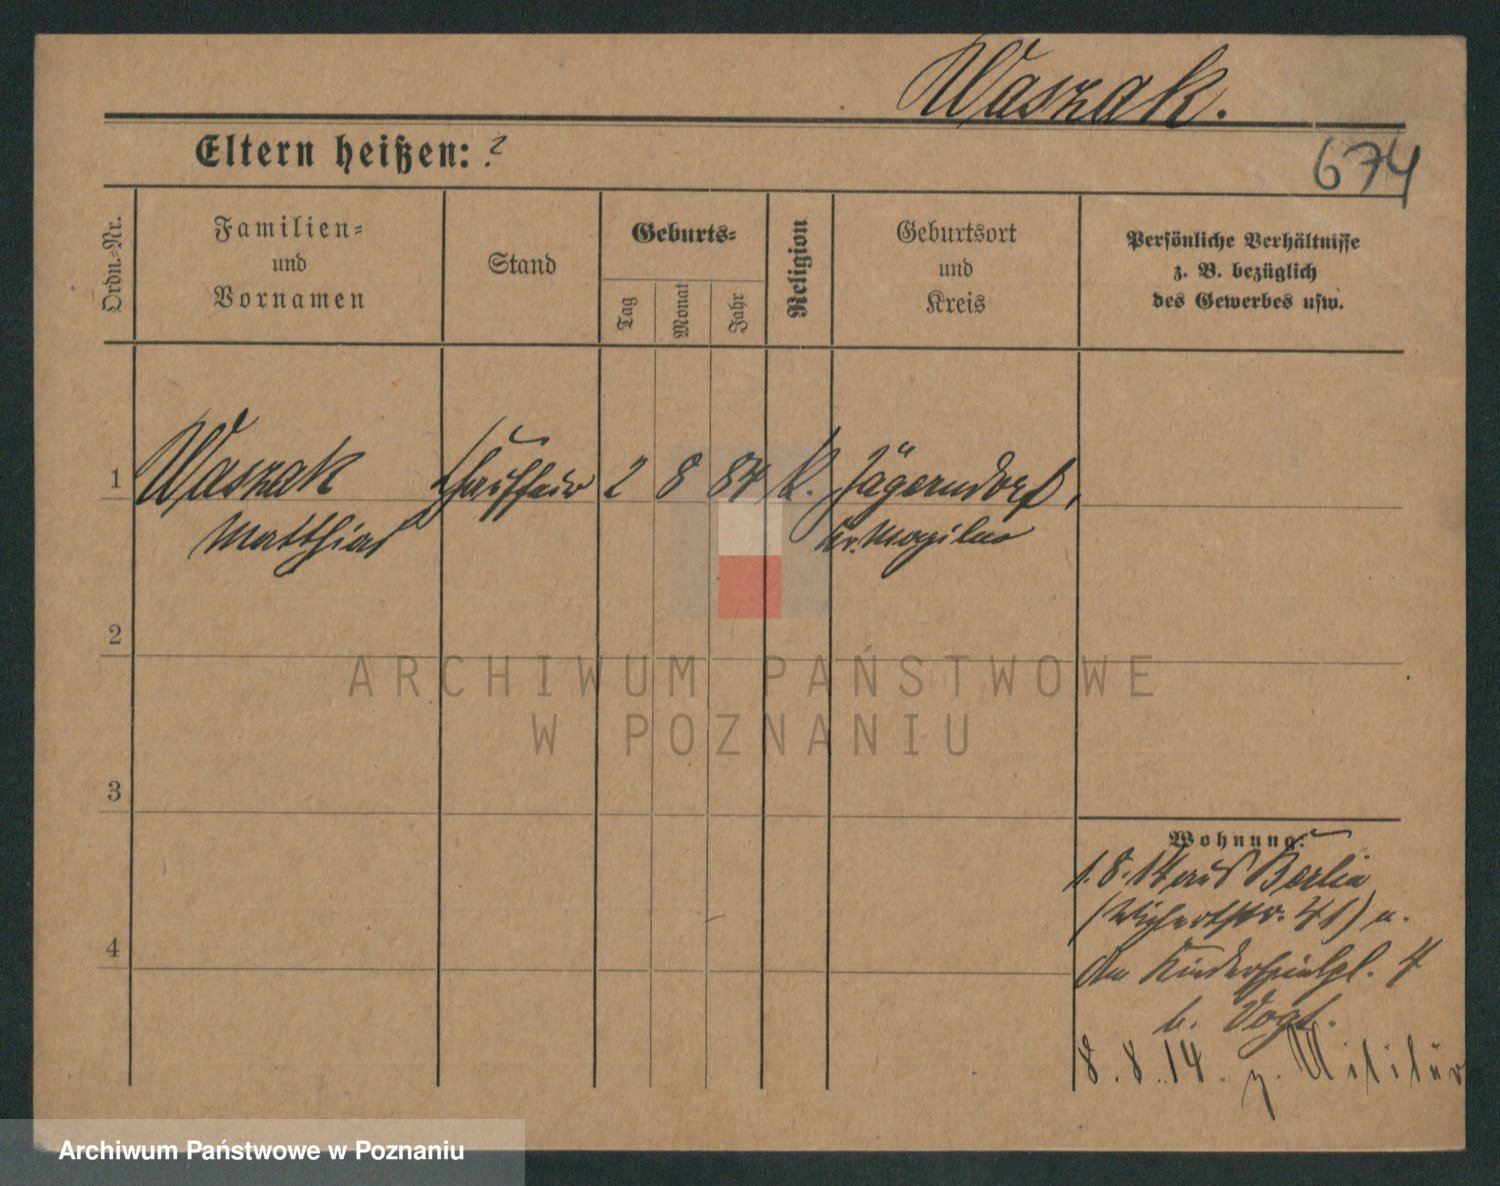 Waszak.
Eltern heißen: ?
674
Ordn.-Nr.
Familien-
und
Vornamen
Stand
Geburts-
Tag
Monat
Jahr
Religion
Geburtsort
und
Kreis
Persönliche Verhältnisse
z. B. bezüglich
des Gewerbes usw.
1 Waszak Chauffeur 2 8 84 K. Jägerndorf,
Matthias Kr. Mogilno
2
3
4
Wohnung:
1.8.14 aus Berlin
(Wichertstr. 41) n.
Am Kinderspielpl. 4
b. Vogt.
8.8.14. z. Militär
ARCHIWUM PAŃSTWOWE
W POZNANIU
Archiwum Państwowe w Poznaniu